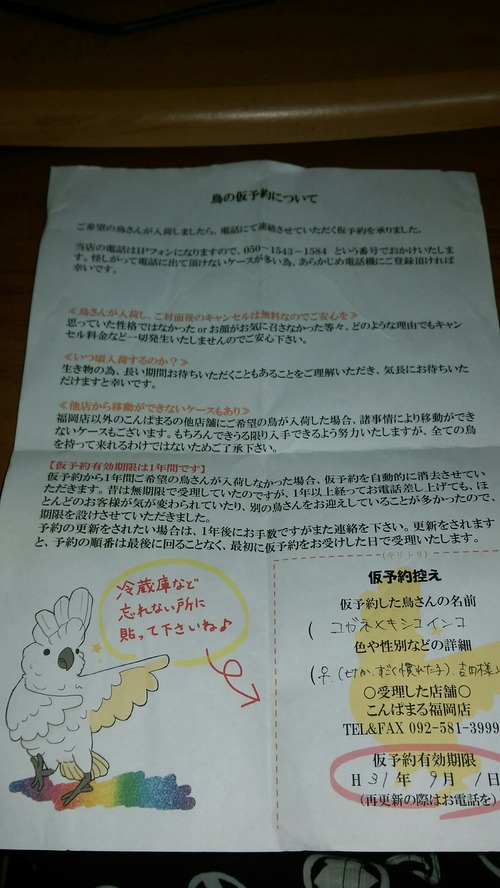 鳥の仮予約について
ご希望の鳥さんが入荷しましたら、電話にて連絡させていただく仮予約を承りました。
当店の電話はIPフォンになりますので、050-1543-1584 という番号でおかけいたしま
す。怪しがって電話に出て頂けないケースが多い為、あらかじめ電話機にご登録頂ければ
幸いです。
≪鳥さんが入荷し、ご対面後のキャンセルは無料なのでご安心を≫
思っていた性格ではなかった or お顔がお気に召さなかった等々、どのような理由でもキャン
セル料金など一切発生いたしませんのでご安心下さい。
≪いつ頃入荷するのか？≫
生き物の為、長い期間お待ちいただくこともあることをご理解いただき、気長にお待ちいた
だけますと幸いです。
≪他店から移動ができないケースもあり≫
福岡店以外のこんぱまるの他店舗にご希望の鳥が入荷した場合、諸事情により移動ができ
ないケースもございます。もちろんできうる限り入手できるよう努力いたしますが、全ての鳥
を持って来れるわけではないためご了承下さい。
【仮予約有効期限は1年間です】
仮予約から1年間ご希望の鳥さんが入荷しなかった場合、仮予約を自動的に消去させてい
ただきます。昔は無期限で受理していたのですが、1年以上経ってお電話差し上げても、ほ
とんどのお客様が気が変わられていたり、別の鳥さんをお迎えしていることが多かったので、
期限を設けさせていただきました。
予約の更新をされたい場合は、1年後にお手数ですがまた連絡を下さい。更新をされます
と、予約の順番は最後に回ることなく、最初に仮予約をお受けした日で受理いたします。
(キリトリ)
冷蔵庫など
忘れない所に
貼って下さいね♪
仮予約控え
仮予約した鳥さんの名前
( コガネメキシコインコ
色や性別などの詳細
(♀.
吉田様
○受理した店舗○
こんぱまる福岡店
TEL&FAX 092-581-3999
仮予約有効期限
H 31 年 9 月 1 日
(再更新の際はお電話を)